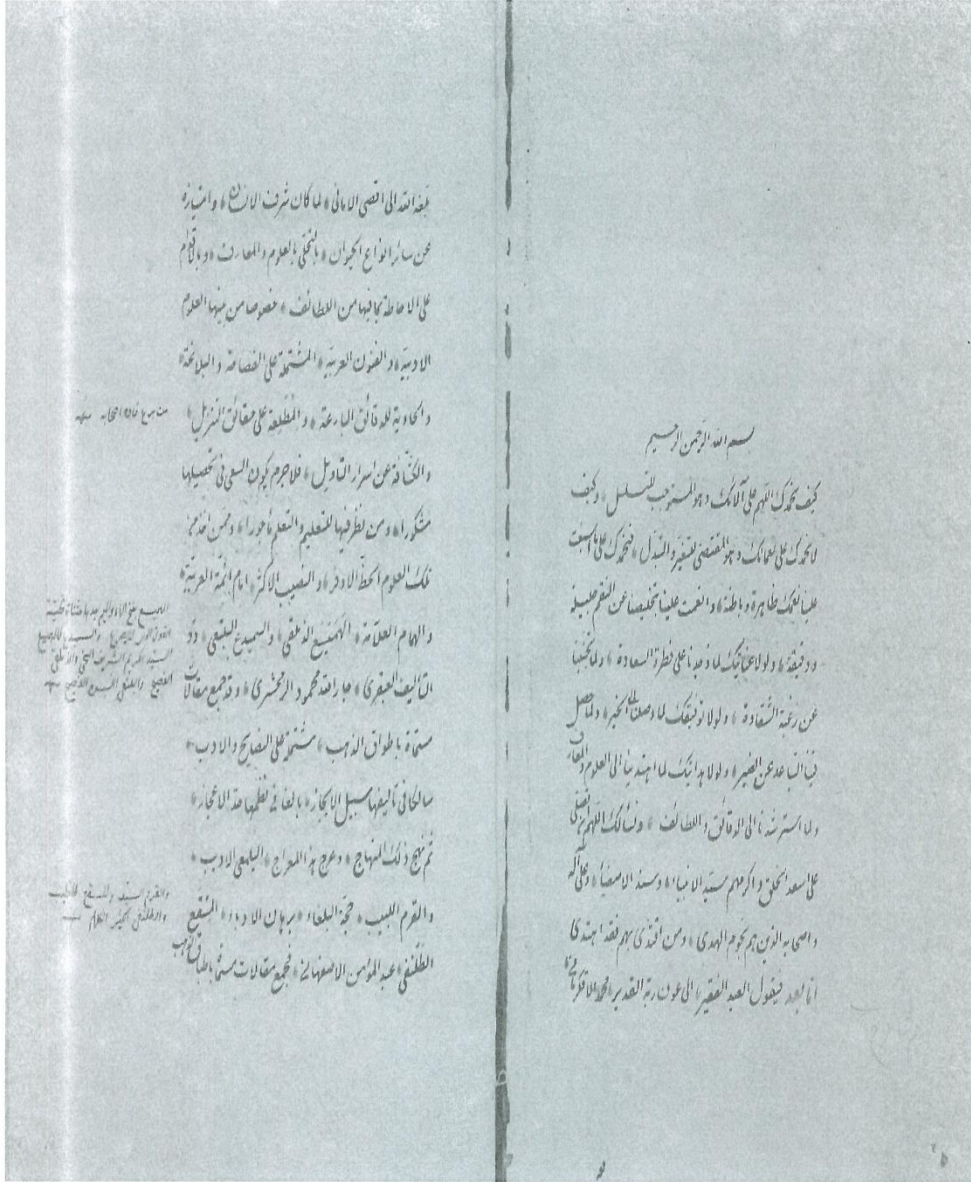 بسم الله الرحمن الرحيم
كيف نحمدك اللهم على آلائك وهو المستوجب للتسلسل وكيف
لا نحمدك على نعمائك وهو المقتضى للتغير والتبدل فنحمدك على ما اسبغت
علينا نعمك ظاهرة وباطنة وانعمت علينا بتخليصنا عن النقم جليلة
ودقيقة ولولا عنايتك لما وجدنا على فطرة السعادة ولما تجنبنا
عن الشقاوة ولولا توفيقك لما وصلنا الى الخير ولما حصل
فينا التباعد عن الضير ولولا هدايتك لما اهتدينا الى العلوم والمعارف
ولما استرشدنا الى الدقائق واللطائف ونسألك اللهم ان تصلى
على اسعد الخلق واكرمهم سيد الانبياء وسند الاصفياء وعلى آله
واصحابه الذين هم نجوم الهدى ومن اقتدى بهم فقد اهتدى
اما بعد فيقول العبد الفقير الى عون ربه القدير محمد
بلغه الله الى اقصى الامانى لما كان شرف الانسان وامتيازه
عن سائر انواع الحيوان بالتحلى بالعلوم والمعارف وبالاقدام
على الاحاطة بما فيها من اللطائف خصوصا من بينها العلوم
الادبية والفنون العربية المشتملة على الفصاحة والبلاغة
والحاوية للدقائق البارعة والمطلعة على حقائق التنزيل
والكشافة عن اسرار التأويل فلا جرم يكون السعى فى تحصيلها
مشكورا ومن نظر فيها للتعليم والتعلم مأجورا وممن اخذ من
تلك العلوم الحظ الاوفر والنصيب الاكثر امام ائمة العربية
والهمام العلامة الهميسع الذلقى والسميدع البلتعى ذو
التأليف العبقرى جار الله محمود الزمخشرى وقد جمع مقالات
مسماة باطواق الذهب مشتملة على النصايح والادب
سالكا فى تأليفها سبيل الايجاز بالغا فى نظمها حد الاعجاز
ثم نهج ذلك المنهاج وعرج هذا المعراج اليلمعى الاديب
والقرم اللبيب حجة البلغاء برهان الادباء المسقع
عبد المؤمن الاصفهانى فجمع مقالات مسماة باطباق الذهب